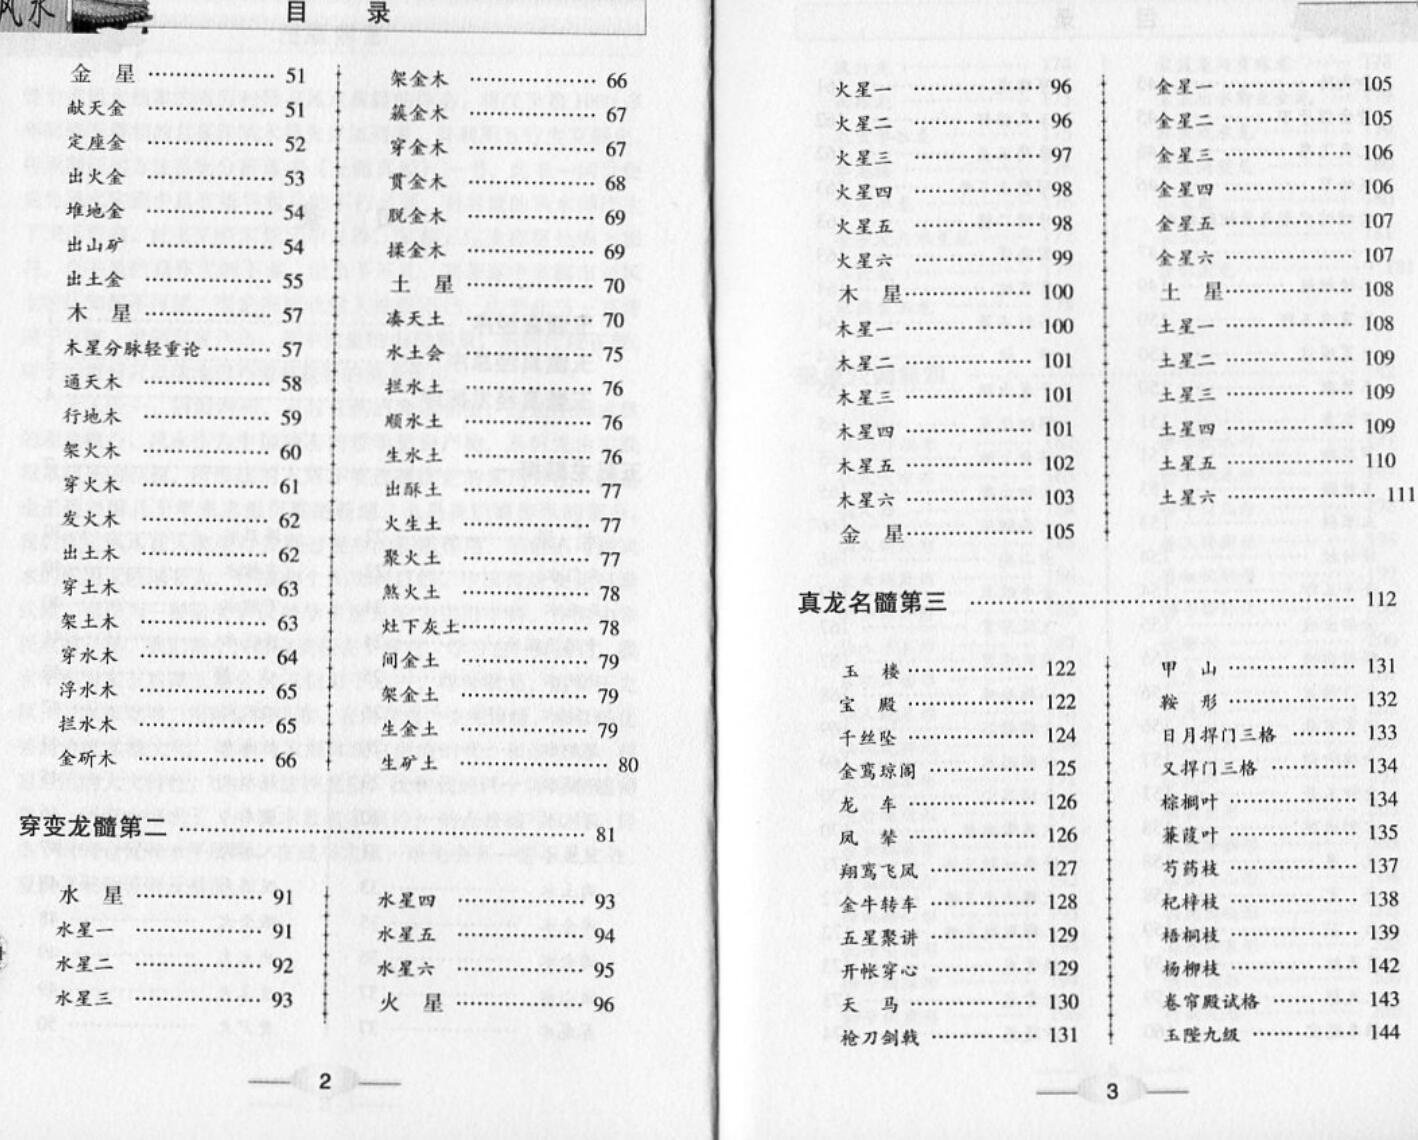 风水
目 录
金 星 ………… 51
献天金 ………… 51
定座金 ………… 52
出火金 ………… 53
堆地金 ………… 54
出山矿 ………… 54
出土金 ………… 55
木 星 ………… 57
木星分脉轻重论 …… 57
通天木 ………… 58
行地木 ………… 59
架火木 ………… 60
穿火木 ………… 61
发火木 ………… 62
出土木 ………… 62
穿土木 ………… 63
架土木 ………… 63
穿水木 ………… 64
浮水木 ………… 65
拦水木 ………… 65
金斫木 ………… 66
架金木 ………… 66
簇金木 ………… 67
穿金木 ………… 67
贯金木 ………… 68
脱金木 ………… 69
揉金木 ………… 69
土 星 ………… 70
凑天土 ………… 70
水土会 ………… 75
拦水土 ………… 76
顺水土 ………… 76
生水土 ………… 76
出酥土 ………… 77
火生土 ………… 77
聚火土 ………… 77
煞火土 ………… 78
灶下灰土 ………… 78
间金土 ………… 79
架金土 ………… 79
生金土 ………… 79
生矿土 ………… 80
穿变龙髓第二 ………… 81
水 星 ………… 91
水星一 ………… 91
水星二 ………… 92
水星三 ………… 93
水星四 ………… 93
水星五 ………… 94
水星六 ………… 95
火 星 ………… 96
2
火星一 ………… 96
火星二 ………… 96
火星三 ………… 97
火星四 ………… 98
火星五 ………… 98
火星六 ………… 99
木 星 ………… 100
木星一 ………… 100
木星二 ………… 101
木星三 ………… 101
木星四 ………… 101
木星五 ………… 102
木星六 ………… 103
金 星 ………… 105
金星一 ………… 105
金星二 ………… 105
金星三 ………… 106
金星四 ………… 106
金星五 ………… 107
金星六 ………… 107
土 星 ………… 108
土星一 ………… 108
土星二 ………… 109
土星三 ………… 109
土星四 ………… 109
土星五 ………… 110
土星六 ………… 111
真龙名髓第三 ………… 112
玉 楼 ………… 122
宝 殿 ………… 122
千丝坠 ………… 124
金鸾琼阁 ………… 125
龙 车 ………… 126
凤 辇 ………… 126
翔鸾飞凤 ………… 127
金牛转车 ………… 128
五星聚讲 ………… 129
开帐穿心 ………… 129
天 马 ………… 130
枪刀剑戟 ………… 131
甲 山 ………… 131
鞍 形 ………… 132
日月捍门三格 ……… 133
又捍门三格 ………… 134
棕榈叶 ………… 134
蒹葭叶 ………… 135
芍药枝 ………… 137
杞梓枝 ………… 138
梧桐枝 ………… 139
杨柳枝 ………… 142
卷帘殿试格 ………… 143
玉陛九级 ………… 144
3